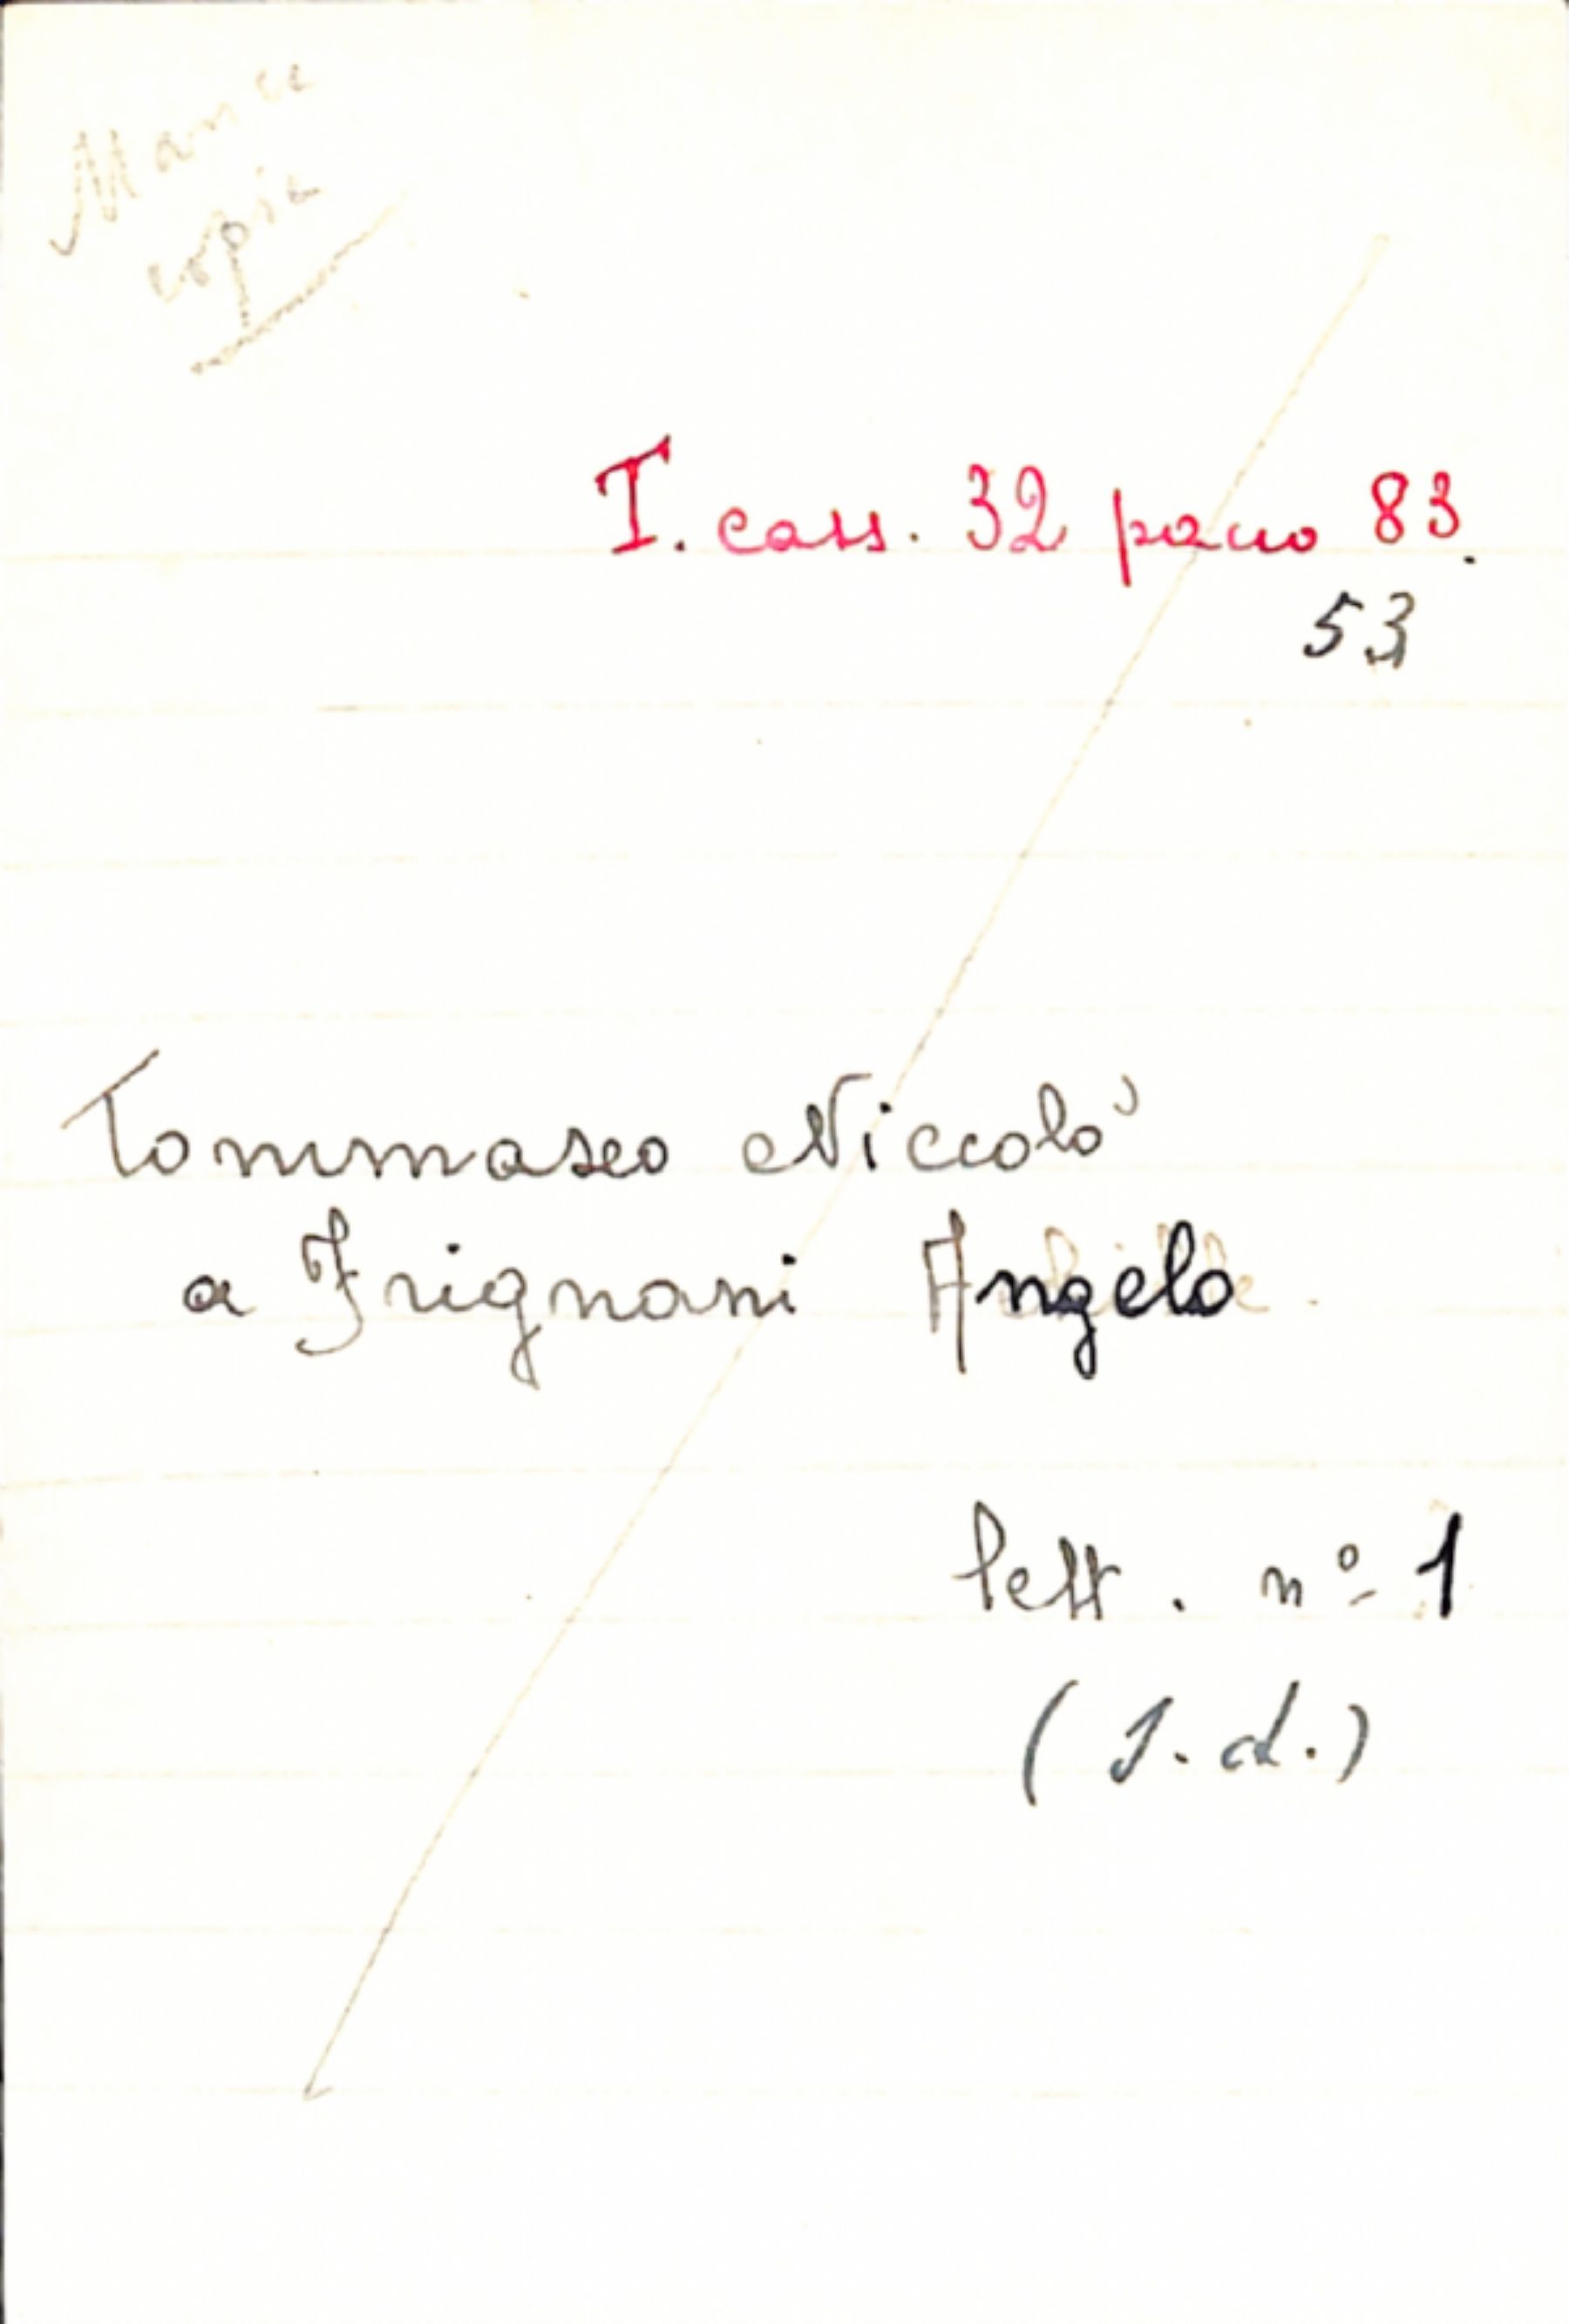 Manca
copia
T. cass. 32 pacco 83.
53
Tommaseo Niccolò
a Frignani Angelo
lett. nº 1
(s.d.)